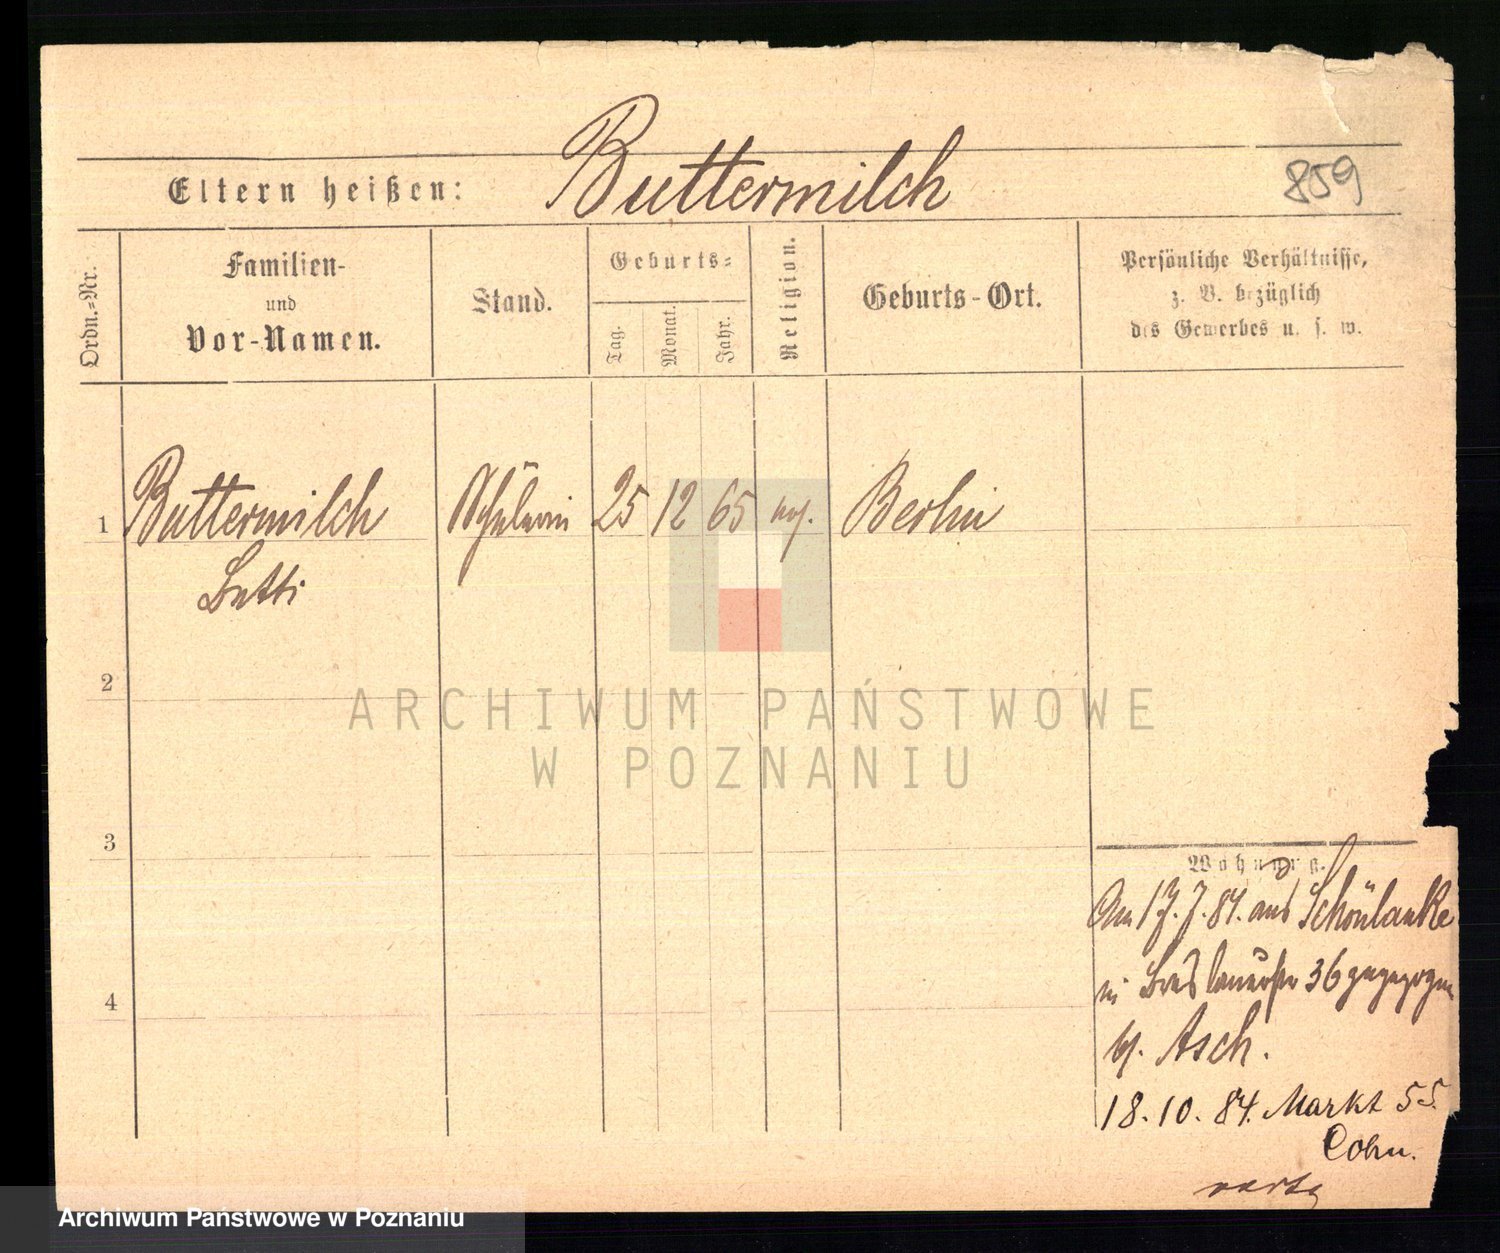 Eltern heißen: Buttermilch
859
Ordn.=Nr.
Familien-
und
Vor-Namen.
Stand.
Geburts=
Tag.
Monat.
Jahr.
Religion.
Geburts-Ort.
Persönliche Verhältnisse,
z. B. bezüglich
des Gewerbes u. s. w.
1 Buttermilch Schülerin 25 12 65 Berlin
2
ARCHIWUM PAŃSTWOWE
W POZNANIU
3
Wohnung.
Am 17. 7. 84. aus Schönlanke
in Breslauerstr 36 zugezogen
bei Asch.
4
18. 10. 84. Markt 55.
Cohn.
Archiwum Państwowe w Poznaniu